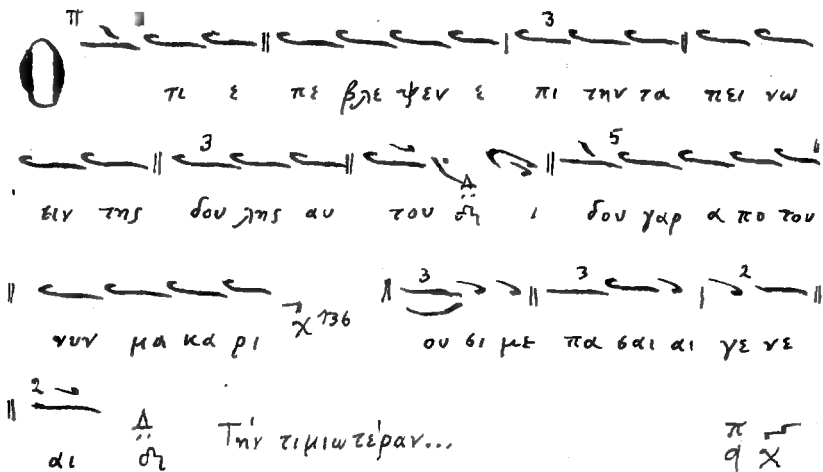 π 3
Ο τι ε πε βλε ψεν ε πι την τα πει νω
3 Δ 5
σιν της δου λης αυ του ι δου γαρ α πο του
χ 136 3 3 2
νυν μα κα ρι ου σι με πα σαι αι γε νε
2 Δ
αι Την τιμιωτέραν... π q χ